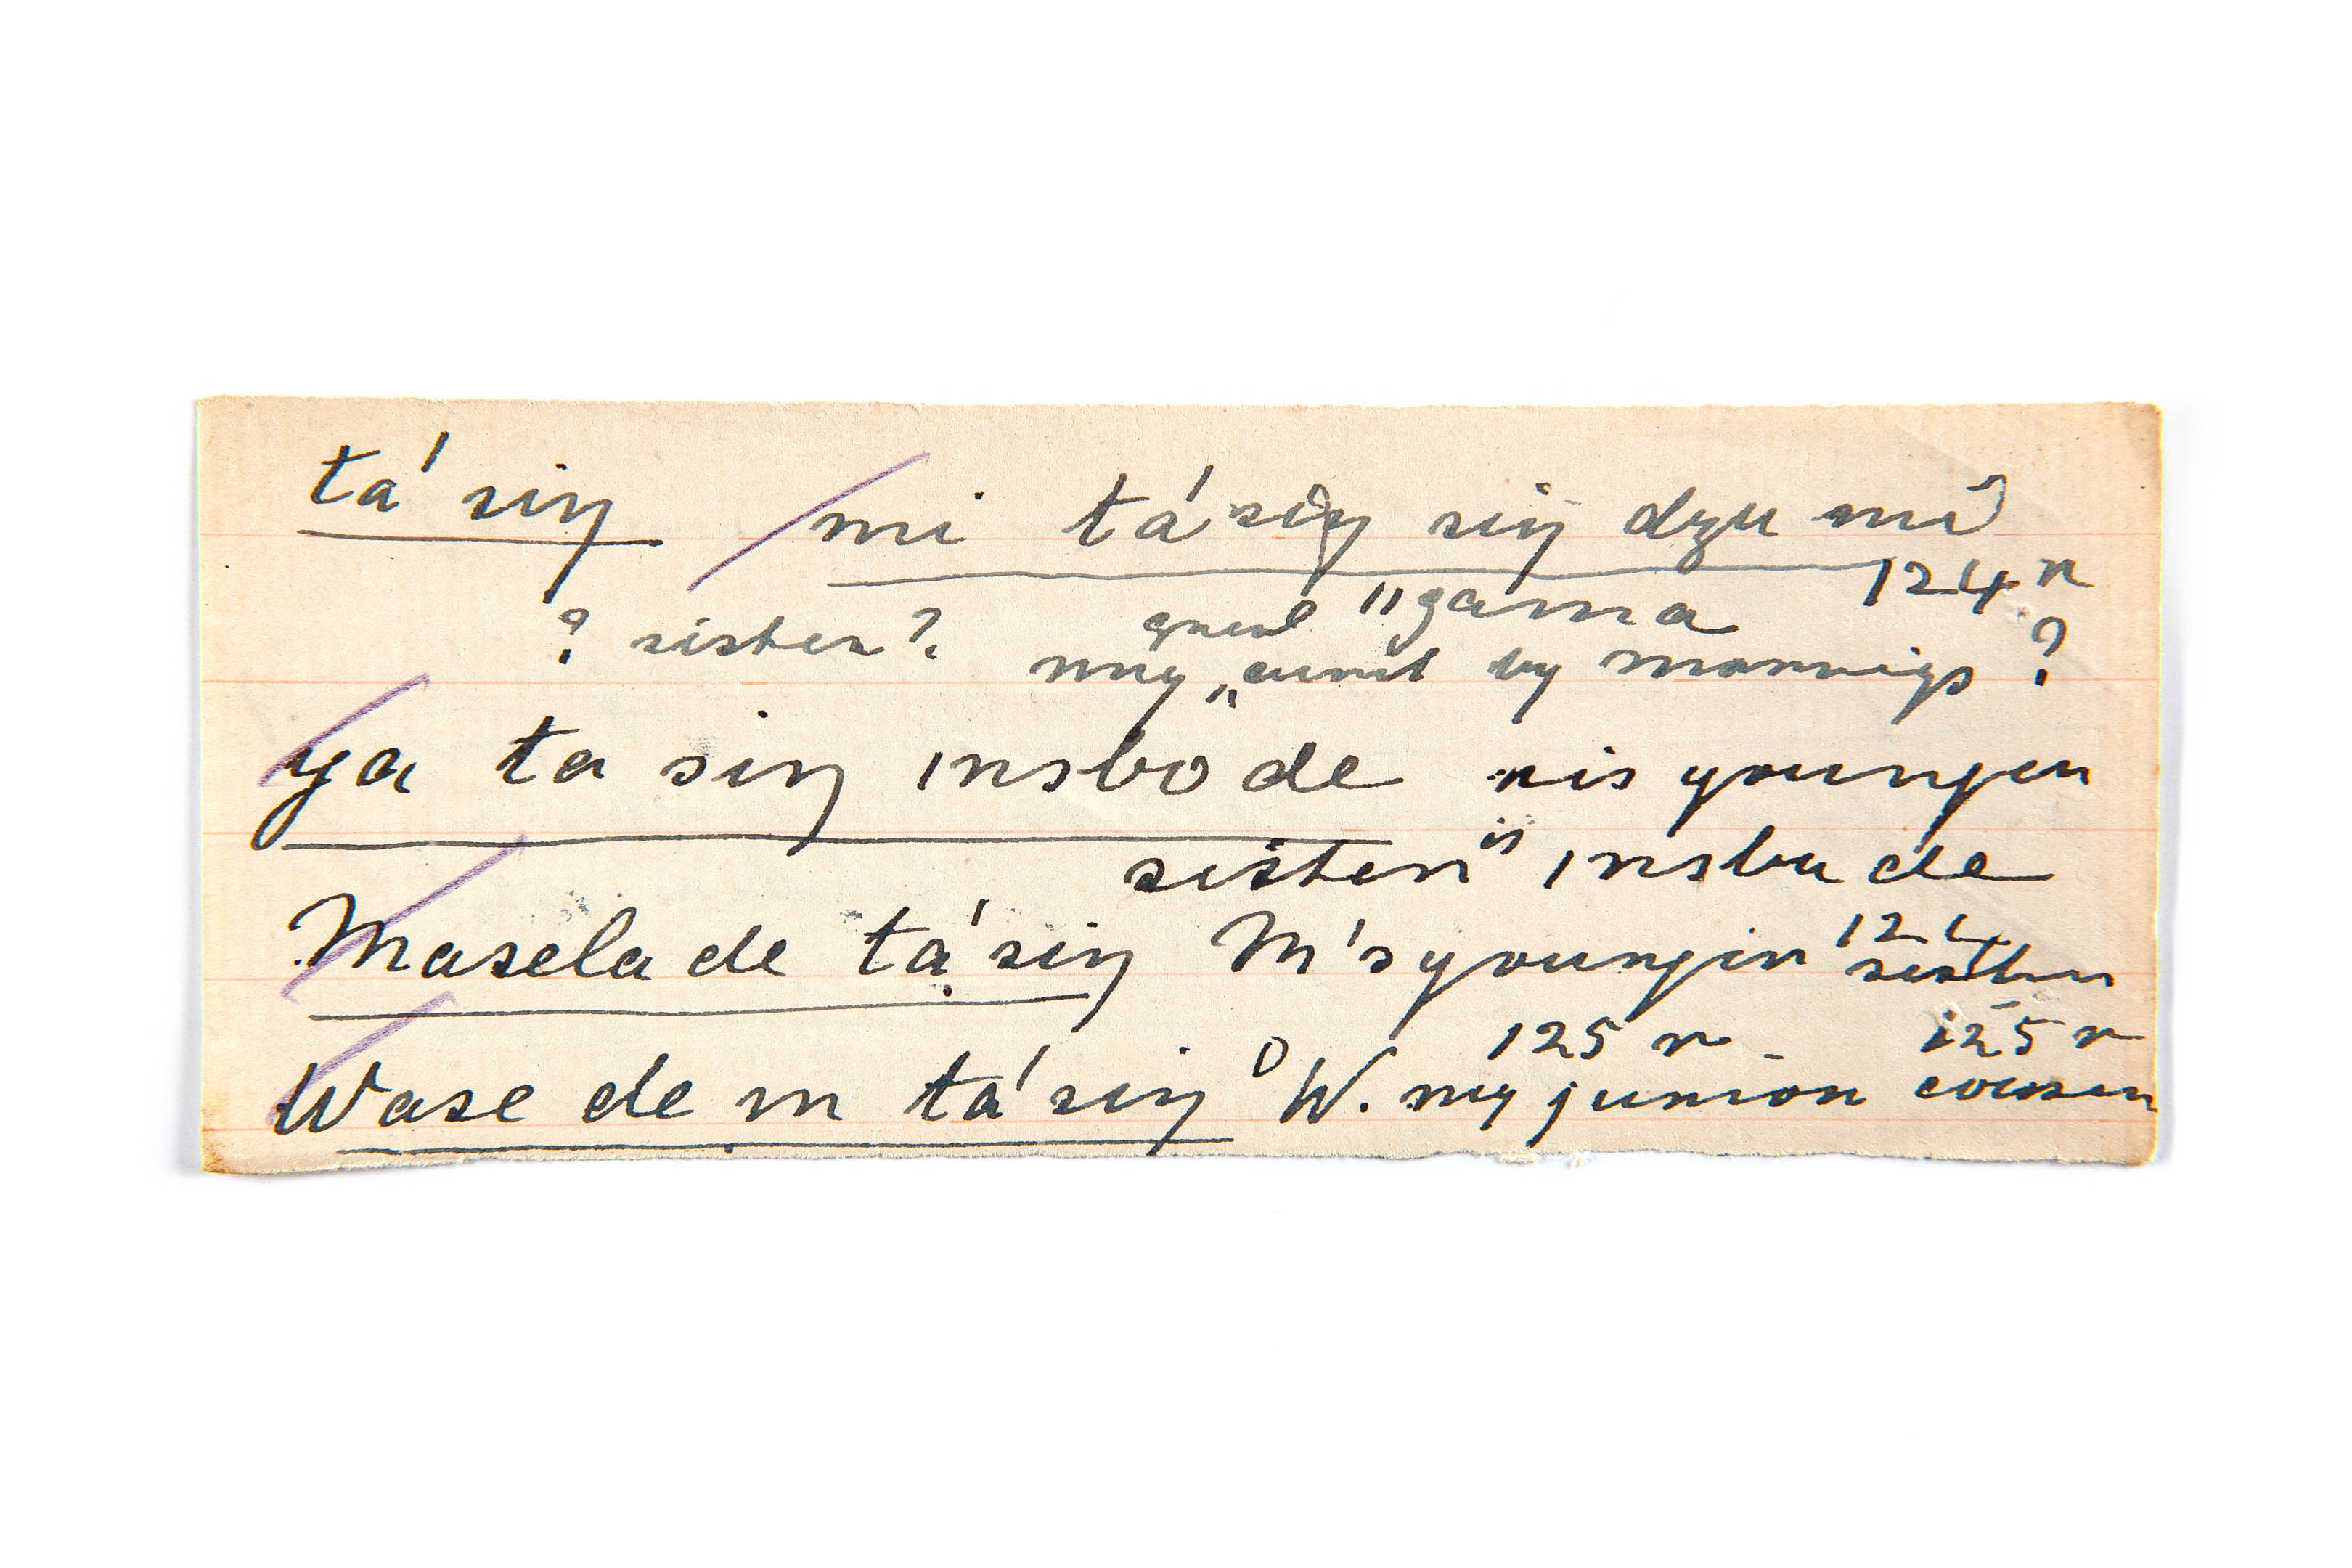 tá siŋ mi tá siŋ siŋ dzu mî
124 r
? sister? "gama
my "aunt by marriage ?
ya ta siŋ insbo de his younger
sister is insbu de
Masela de tá siŋ M's younger sister
125 r - 125 r
Wase de m tá siŋ W. my junior cousin